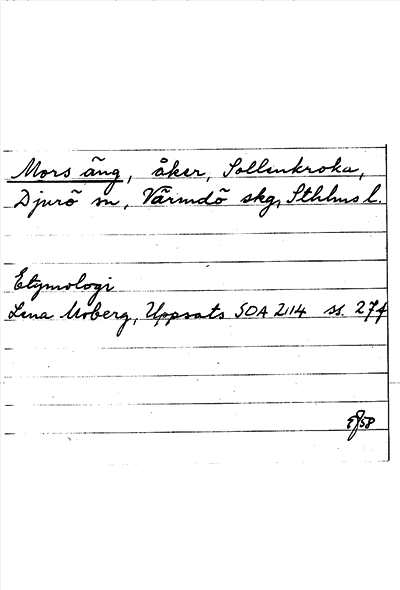 Mors äng, åker, Sollenkroka,
Djurö sn, Värmdö skg, Sthlms l.
Etymologi
Lena Moberg, Uppsats SOA 2114 ss. 27f